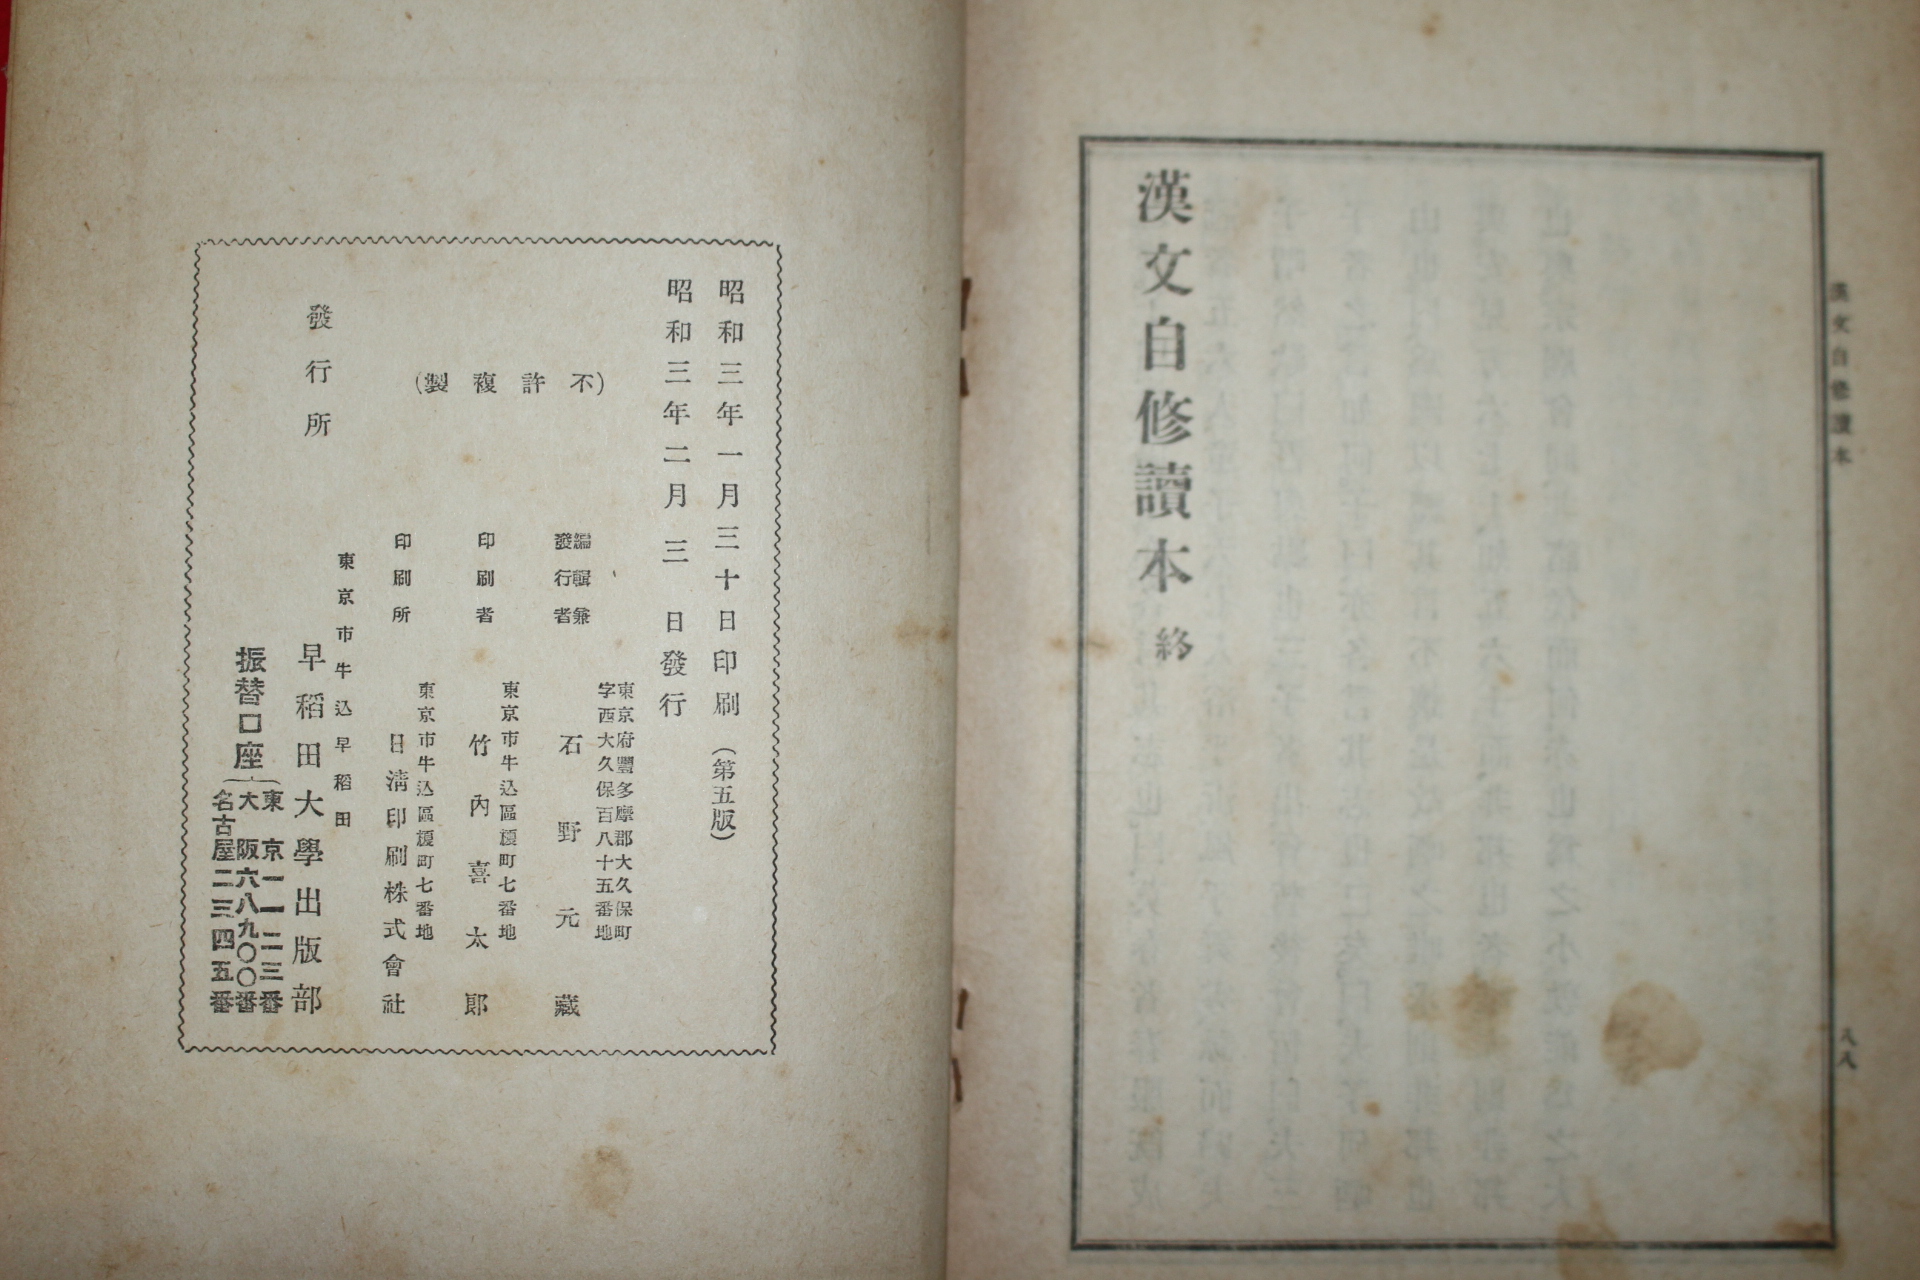 漢文自修讀本
八八
漢文自修讀本 終
昭和三年一月三十日印刷 (第五版)
昭和三年二月三日發行
(不許複製)
編輯兼
發行者
東京府豐多摩郡大久保町
字西大久保百八十五番地
石野元藏
印刷者
東京市牛込區榎町七番地
竹內喜太郎
印刷所
東京市牛込區榎町七番地
日淸印刷株式會社
發行所
東京市牛込早稻田
早稻田大學出版部
振替口座
東京一一二三番
大阪六八九〇〇番
名古屋二三四五番